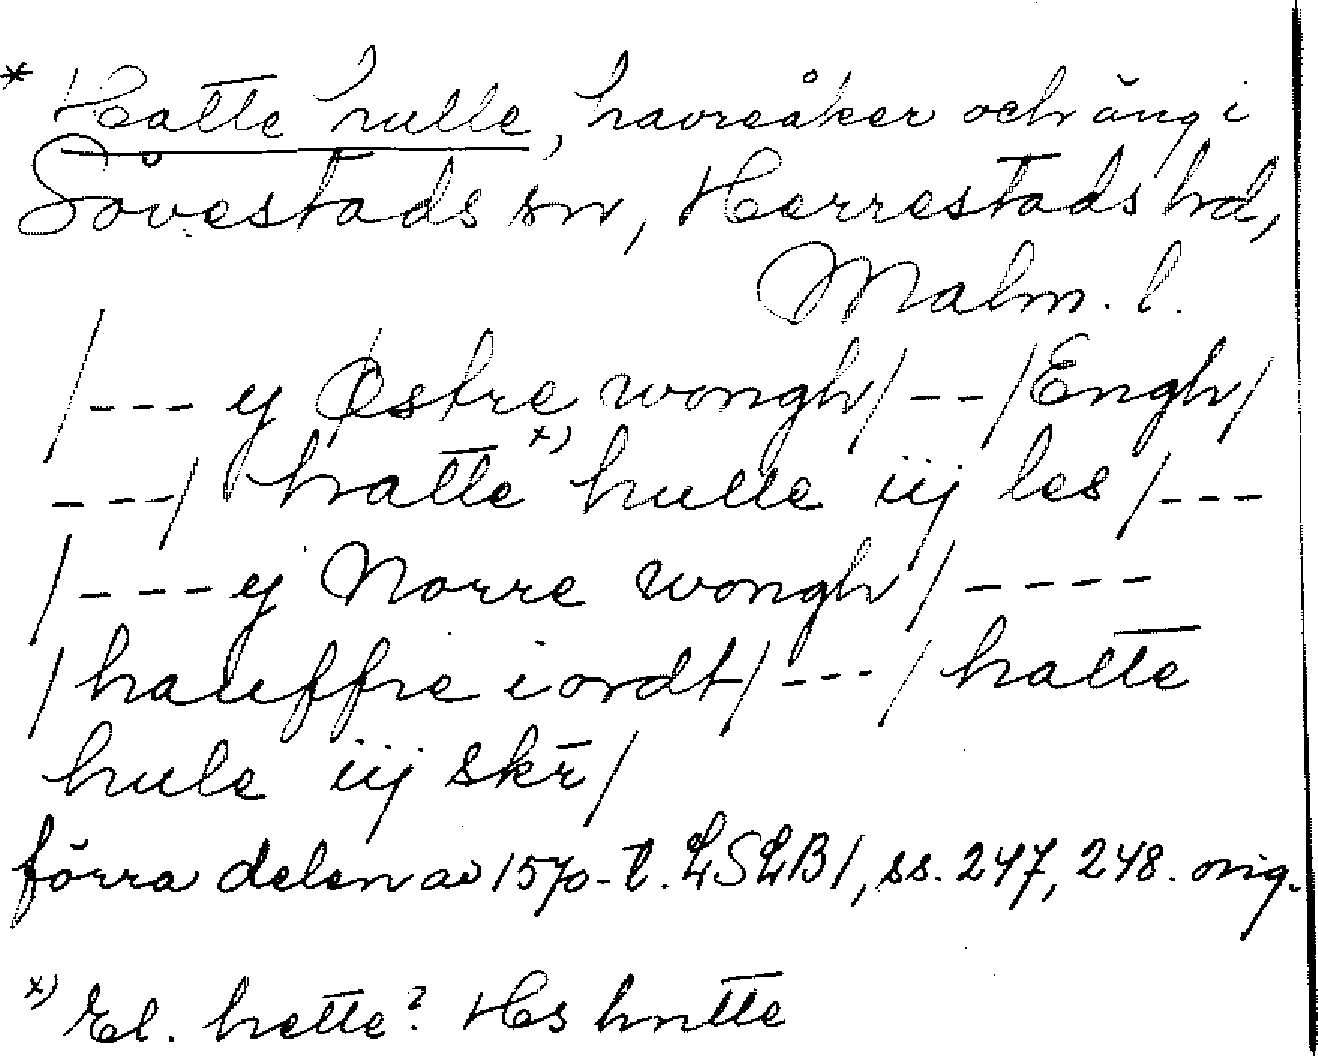 * Hatte hulle, havreåker och äng i
Såvestads sn, Herrestads hd,
Malm. l.
/--- y Østre wongh/ --/Engh/
---/ hatte x) hulle iij les /---
/--- ej Norre wongh/ ----
/hauffre iordt/ ---/ hatte
hule iij skr̄/
förra delen av 1570-t. LSLB1, ss. 247, 248. orig.
x) El. hette? Hs hntte